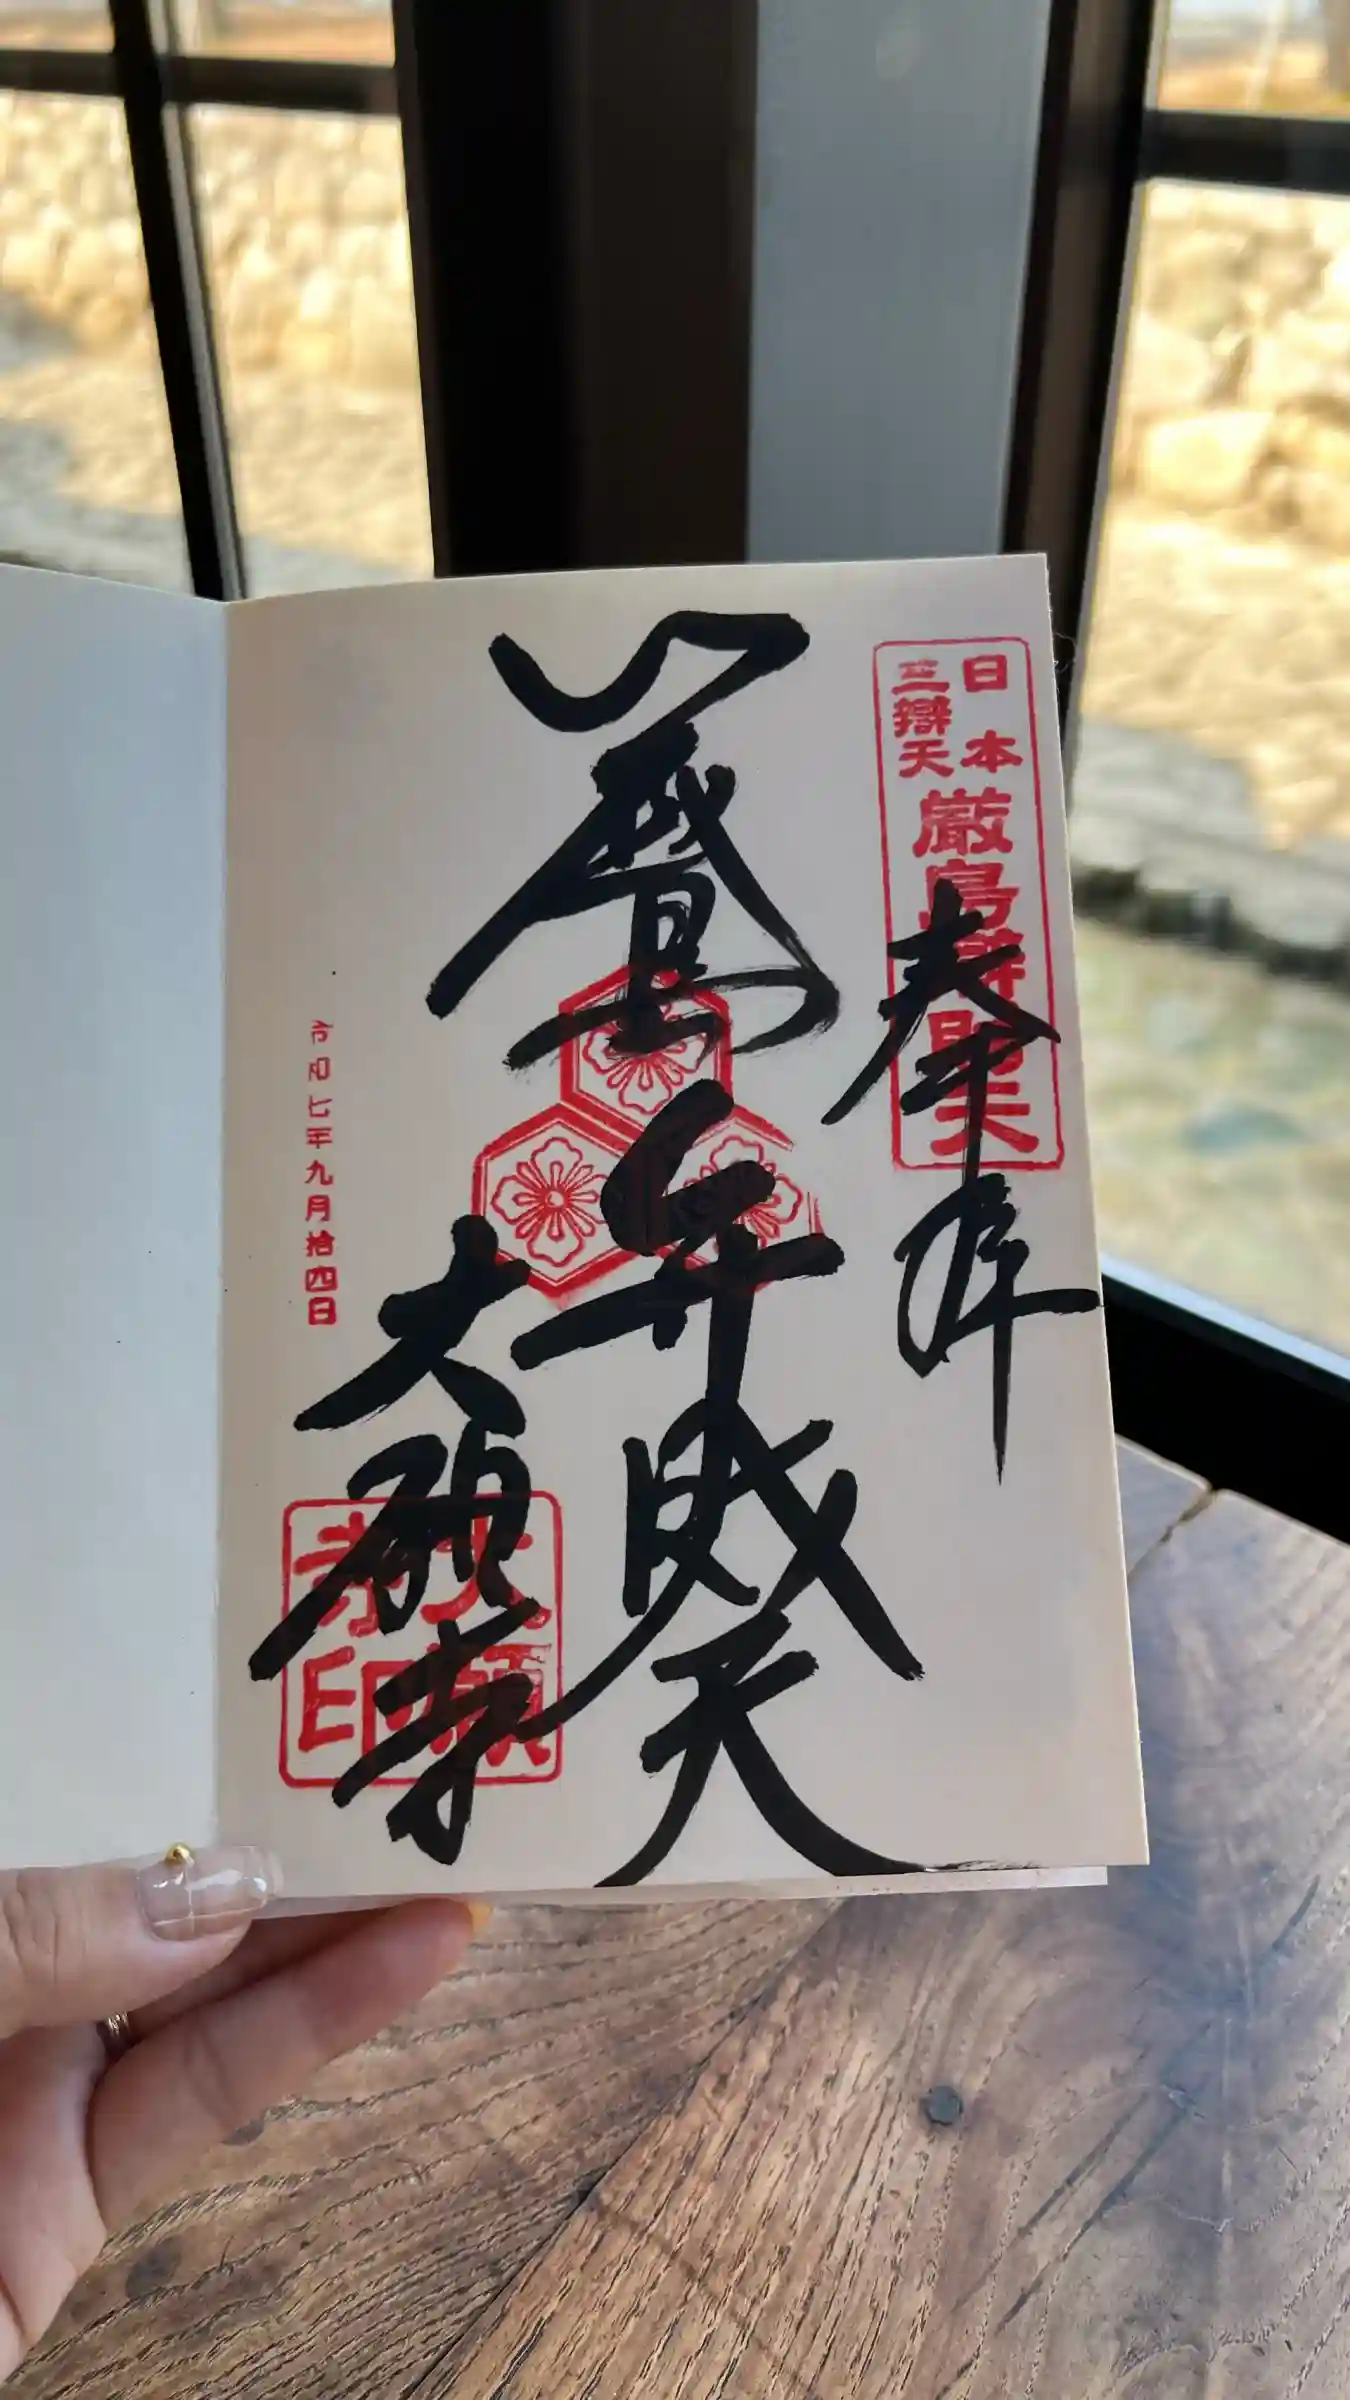 日本
三辯天
厳島辯財天
奉拝
厳島弁財天
大願寺
大願寺印
令和七年九月拾四日